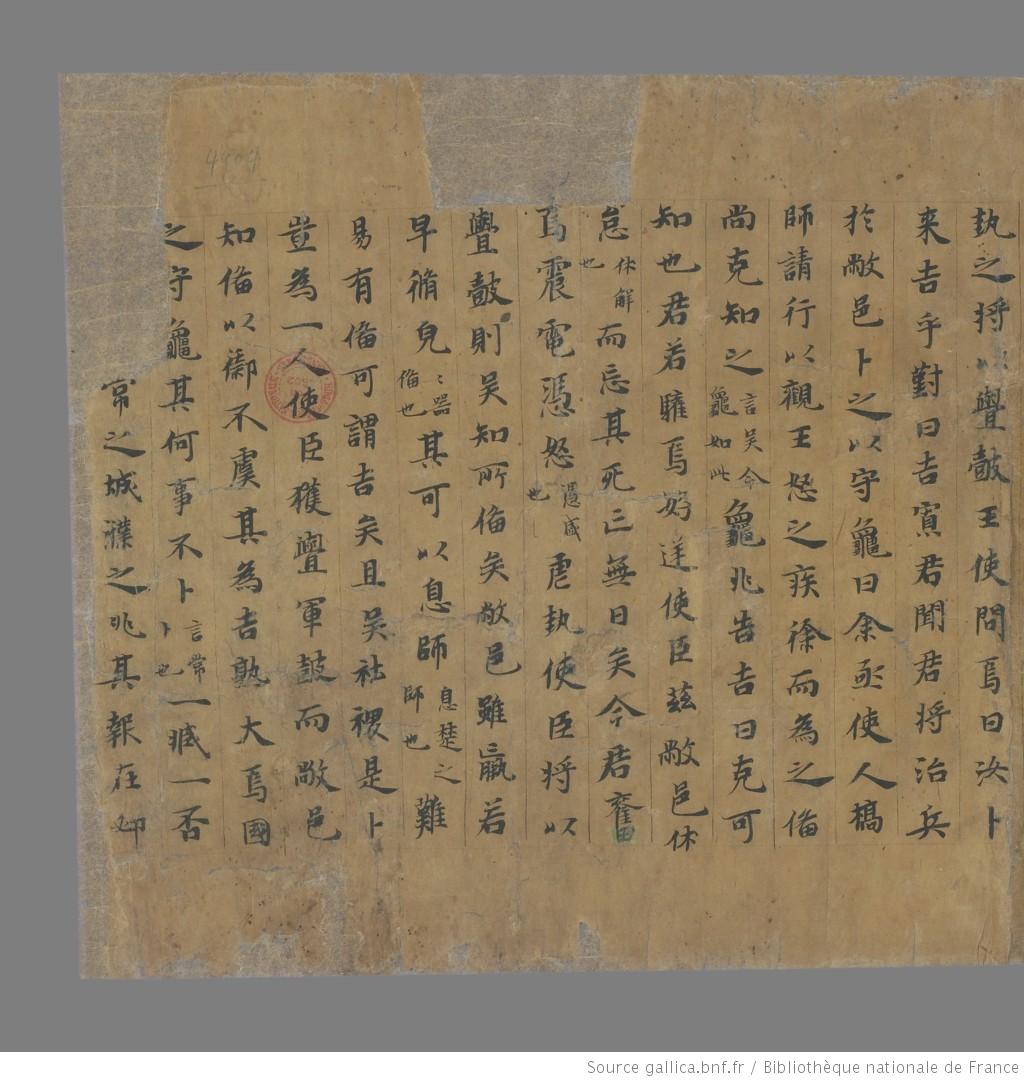 執之将以舋皷王使問焉曰汝卜
来吉乎對曰吉寡君聞君将治兵
扵敝邑卜之以守龜曰余亟使人犒
師請行以觀王怒之疾徐而為之俻
尚克知之言吴令龜如此龜兆告吉曰克可
知也君若驩焉好逆使臣兹敝邑休
怠休解也而忘其死亡無日矣今君奮
焉震電憑怒憑盛也虐執使臣将以
舋皷則吴知所俻矣敝邑雖羸若
早脩皃〻器俻也其可以息師息楚之師也難
易有俻可謂吉矣且吴社稷是卜
豈為一人使臣獲舋軍皷而敝邑
知俻以禦不虞其為吉孰大焉國
之守龜其何事不卜言常卜也一臧一否
常之城濮之兆其報在邲
Source gallica.bnf.fr / Bibliothèque nationale de France